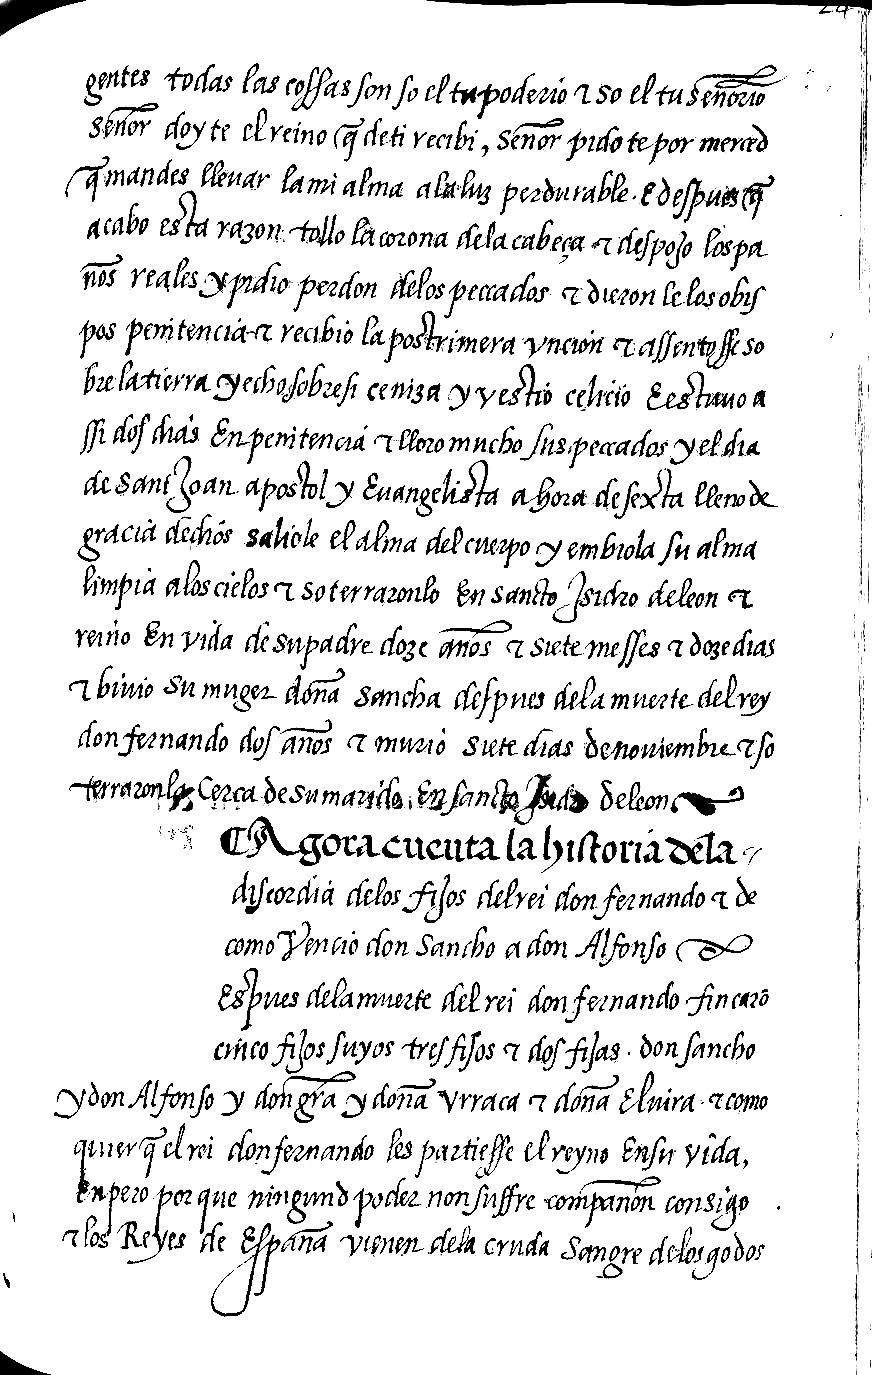 24
gentes todas las cossas son so el tu poderio τ so el tu señorio
señor doy te el reino q̃ de ti recibi, señor pido te por merced
q̃ mandes lleuar la mi alma a la luz perdurable. E despues q̃
acabo esta razon tollo la corona de la cabeça τ despojo los pa
ños reales y pidio perdon delos peccados τ dieron le los obis
pos penitencia τ recibio la postrimera vncion τ assentosse so
bre la tierra y echo sobre si ceniza y vestio celicio E estuuo a
ssi dos dias En penitencia τ lloro mucho sus peccados y el dia
de Sant Joan apostol y Euangelista a hora de sexta lleno de
gracia de dios saliole el alma del cuerpo y embiola su alma
limpia a los cielos τ soterraronlo En sancto Jsidro de leon τ
reino En vida de su padre doze años τ siete messes τ doze dias
τ biuio su muger doña sancha despues dela muerte del rey
don fernando dos años τ murio siete dias de nouiembre τ so
terraronla Cerca de su marido En sancto Jsidro de leon
Agora cuenta la historia dela
discordia delos fijos del rei don fernando τ de
como Vencio don Sancho a don Alfonso
Espues dela muerte del rei don fernando fincarõ
cinco fijos suyos tres fijos τ dos fijas. don sancho
y don Alfonso y don gr̃a y doña Vrraca τ doña Eluira τ como
quier q̃ el rei don fernando les partiesse el reyno En su vida,
Enpero por que ningund poder non suffre compañon consigo
τ los Reyes de España vienen dela cruda sangre delos godos